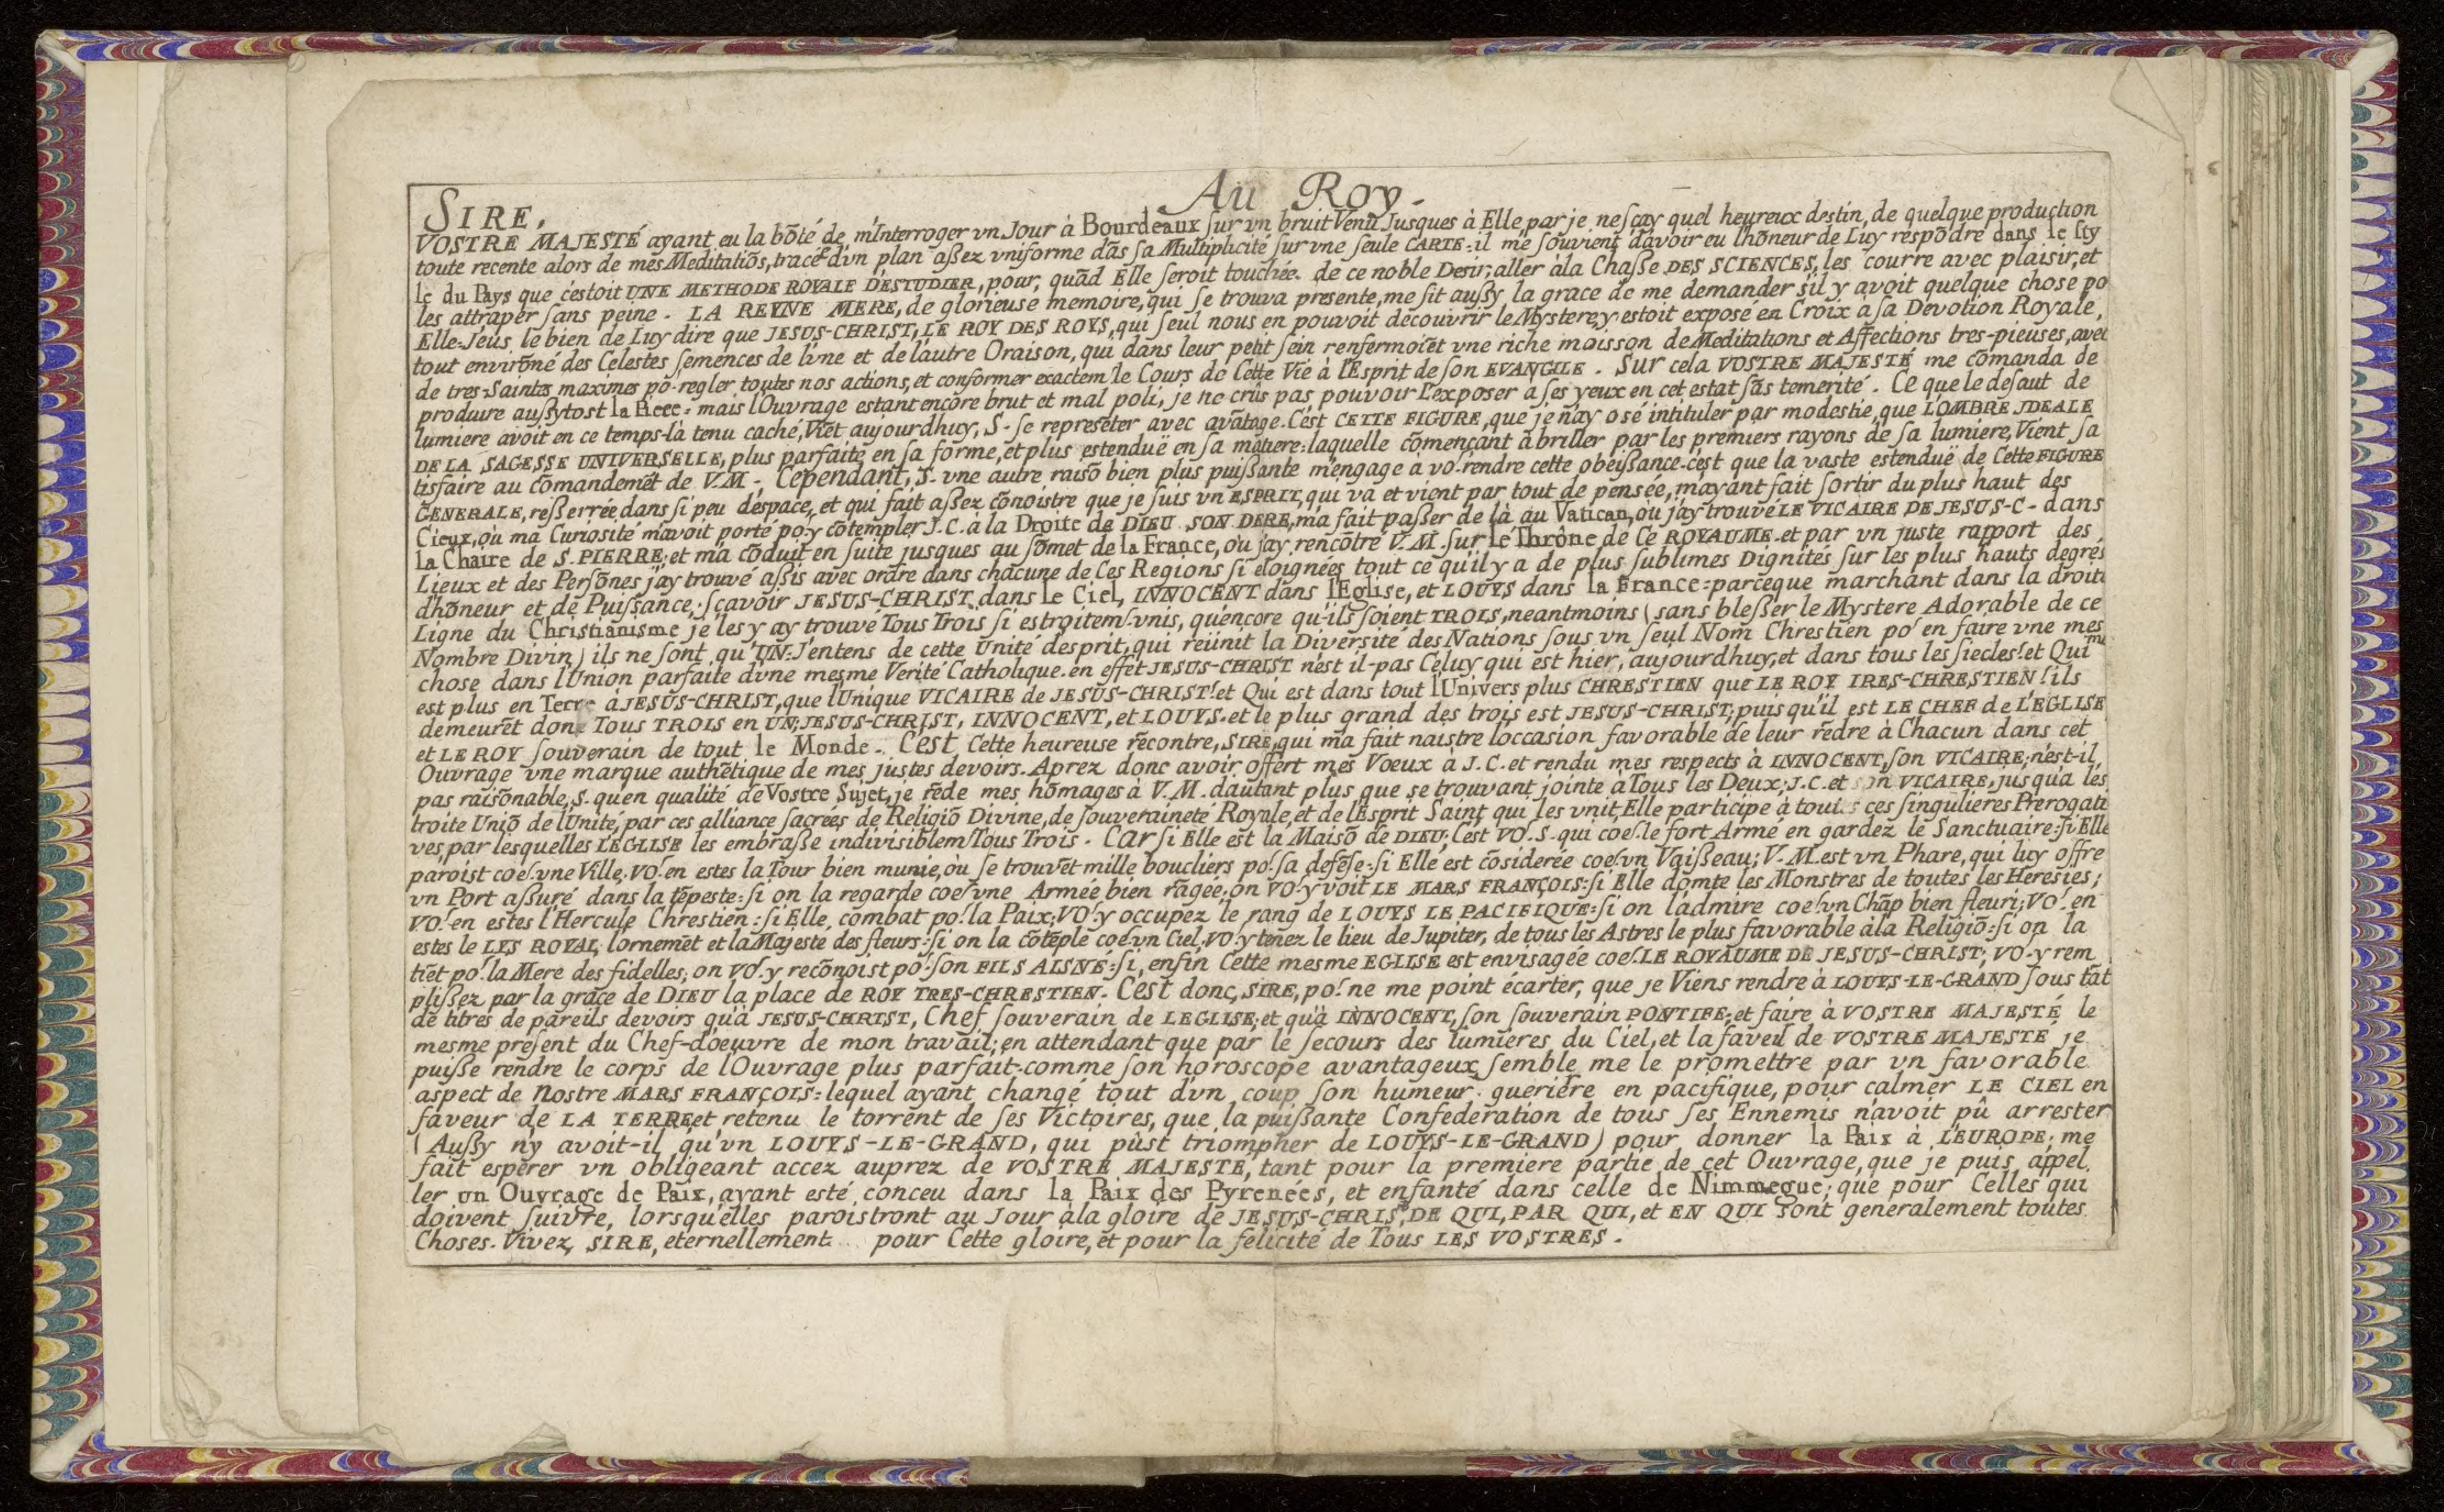 Au Roy.
SIRE,
VOSTRE MAJESTÉ ayant eu la bõté de m'Interroger vn Jour à Bourdeaux ſur vn bruit Venu Jusques à Elle, par je ne ſçay quel heureux destin, de quelque production
toute recente alors de mes Meditatiõs, tracé d'vn plan aßez vniforme dãs ſa Multiplicité ſur vne ſeule CARTE: il me ſouvient d'avoir eu l'hõneur de Luy respõdre dans le ſty
le du Pays que c'estoit UNE METHODE ROYALE D'ESTUDIER, pour, quãd Elle ſeroit touchée de ce noble Desir, aller à la Chaße DES SCIENCES, les courre avec plaisir, et
les attraper ſans peine. LA REYNE MERE, de glorieuse memoire, qui ſe trouva presente, me fit außy la grace de me demander s'il y avoit quelque chose po
Elle: J'eus le bien de Luy dire que JESUS-CHRIST, LE ROY DES ROYS, qui ſeul nous en pouvoit découvrir le Mystere, y estoit exposé en Croix à ſa Devotion Royale,
tout envirõné des Celestes ſemences de l'vne et de l'autre Oraison, qui dans leur petit ſein renfermoiẽt vne riche moisson de Meditations et Affections tres-pieuses, avec
de tres-Saintes maximes po. regler toutes nos actions, et conformer exactem.ᵗ le Cours de Cette Vie à l'Esprit de ſon EVANGILE. Sur cela VOSTRE MAJESTÉ me cõmanda de
produire außytost la Piece: mais l'Ouvrage estant encore brut et mal poli, je ne crûs pas pouvoir l'exposer a ſes yeux en cet estat ſãs temerité. Ce que le defaut de
lumiere avoit en ce temps-là tenu caché, Viẽt aujourdhuy, S. ſe represẽter avec avãtage. C'est CETTE FIGURE, que je n'ay osé intituler par modestie, que L'OMBRE JDEALE
DE LA SAGESSE UNIVERSELLE, plus parfaite en ſa forme, et plus estenduë en ſa matiere: laquelle cõmençant à briller par les premiers rayons de ſa lumiere, Vient ſa
tisfaire au cõmandemẽt de V.M. Cependant, S. vne autre raisõ bien plus puißante m'engage a vo. rendre cette obeißance. c'est que la vaste estenduë de Cette FIGURE
GENERALE, reßerrée dans ſi peu d'espace, et qui fait aßez cõnoistre que je ſuis vn ESPRIT, qui va et vient par tout de pensée, m'ayant fait ſortir du plus haut des
Cieux, où ma Curiosité m'avoit porté po. y cõtempler J.C. à la Droite de DIEU SON PERE, m'a fait paßer de là au Vatican, où j'ay trouvé LE VICAIRE DE JESUS-C. dans
la Chaire de S. PIERRE; et m'a cõduit en ſuite jusques au ſõmet de la France, où j'ay rencõtré V.M. ſur le Thrône de Ce ROYAUME. et par vn juste rapport des
Lieux et des Persõnes j'ay trouvé aßis avec ordre dans chacune de Ces Regions ſi éloignées tout ce qu'il y a de plus ſublimes Dignités ſur les plus hauts degrés
d'hõneur et de Puiſsance; ſçavoir JESUS-CHRIST dans le Ciel, INNOCENT dans l'Eglise, et LOUYS dans la France: parceque marchant dans la droite
Ligne du Christianisme je les y ay trouvé Tous Trois ſi estroitem.ᵗ vnis, qu'encore qu'ils ſoient TROIS, neantmoins (sans bleßer le Mystere Adorable de ce
Nombre Divin) ils ne ſont qu'UN. J'entens de cette Unité d'esprit, qui reünit la Diversité des Nations ſous vn ſeul Nom Chrestien po.ʳ en faire vne mes
chose dans l'Union parfaite d'vne mesme Verité Catholique. en effet JESUS-CHRIST n'est il-pas Celuy qui est hier, aujourdhuy, et dans tous les ſiecles! et Qui
est plus en Terre à JESUS-CHRIST, que l'Unique VICAIRE de JESUS-CHRIST! et Qui est dans tout l'Univers plus CHRESTIEN que LE ROY TRES-CHRESTIEN! ils
demeurẽt donc Tous TROIS en UN; JESUS-CHRIST, INNOCENT, et LOUYS. et le plus grand des trois est JESUS-CHRIST; puis qu'il est LE CHEF de L'EGLISE
et LE ROY ſouverain de tout le Monde. C'est Cette heureuse rẽcontre, SIRE, qui m'a fait naistre l'occasion favorable de leur rẽdre à Chacun dans cet
Ouvrage vne marque authẽtique de mes justes devoirs. Aprez donc avoir offert mes Voeux à J.C. et rendu mes respects à INNOCENT, ſon VICAIRE; n'est-il
pas raisõnable, S. qu'en qualité de Vostre Sujet, je rẽde mes hõmages à V.M. d'autant plus que se trouvant jointe à Tous les Deux; J.C. et son VICAIRE, jusqu'a l'és
troite Uniõ de l'Unité, par ces alliance ſacrées de Religiõ Divine, de ſouveraineté Royale, et de l'Esprit Saint qui les vnit, Elle participe à toutes ces ſingulieres Prerogati
ves, par lesquelles L'EGLISE les embraße indivisiblem.ᵗ Tous Trois. Car ſi Elle est la Maisõ de DIEU; C'est VO. S. qui coe. le fort Armé en gardez le Sanctuaire: ſi Elle
paroist coe. vne Ville, VO. en estes la Tour bien munie, où ſe trouvẽt mille boucliers po. ſa defẽse: ſi Elle est cõsiderée coe. vn Vaißeau; V.M. est vn Phare, qui luy offre
vn Port aßuré dans la tẽpeste: ſi on la regarde coe. vne Armée bien rãgée; on VO. y voit LE MARS FRANÇOIS: ſi Elle dõmte les Monstres de toutes les Heresies;
VO. en estes l'Hercule Chrestien: ſi Elle combat po. la Paix; VO. y occupez le rang de LOUYS LE PACIFIQUE: ſi on l'admire coe. vn Chãp bien fleuri; VO. en
estes le LYS ROYAL, l'ornemẽt et la Majesté des fleurs: ſi on la cõtẽple coe. vn Ciel, VO. y tenez le lieu de Jupiter, de tous les Astres le plus favorable à la Religiõ: ſi on la
tiẽt po. la Mere des fidelles; on VO. y recõnoist po. ſon FILS AISNÉ: ſi, enfin Cette mesme EGLISE est envisagée coe. LE ROYAUME DE JESUS-CHRIST; VO. y rem
plißez par la grace de DIEU la place de ROY TRES-CHRESTIEN. C'est donc, SIRE, po. ne me point écarter, que je Viens rendre à LOUYS-LE-GRAND ſous tãt
de titres de pareils devoirs qu'à JESUS-CHRIST, Chef ſouverain de L'EGLISE; et qu'à INNOCENT, ſon ſouverain PONTIFE; et faire à VOSTRE MAJESTÉ le
mesme present du Chef-d'oeuvre de mon travail; en attendant que par le ſecours des lumieres du Ciel, et la faveur de VOSTRE MAJESTÉ je
puiße rendre le corps de l'Ouvrage plus parfait. comme ſon horoscope avantageux ſemble me le promettre par vn favorable
aspect de nostre MARS FRANÇOIS: lequel ayant changé tout d'vn coup ſon humeur gueriére en pacifique, pour calmer LE CIEL en
faveur de LA TERRE, et retenu le torrent de ſes Victoires, que la puißante Confederation de tous ſes Ennemis n'avoit pû arrester
(Außy n'y avoit-il qu'vn LOUYS-LE-GRAND, qui pûst triompher de LOUYS-LE-GRAND) pour donner la Paix à L'EUROPE; me
fait esperer vn obligeant accez auprez de VOSTRE MAJESTE, tant pour la premiere partie de cet Ouvrage, que je puis appel
ler un Ouvrage de Paix, ayant esté conceu dans la Paix des Pyrenées, et enfanté dans celle de Nimmegue; que pour Celles qui
doivent ſuivre, lorsqu'elles paroistront au Jour à la gloire de JESUS-CHRIST, DE QUI, PAR QUI, et EN QUI sont generalement toutes
Choses. Vivez, SIRE, eternellement pour Cette gloire, et pour la felicité de Tous LES VOSTRES.